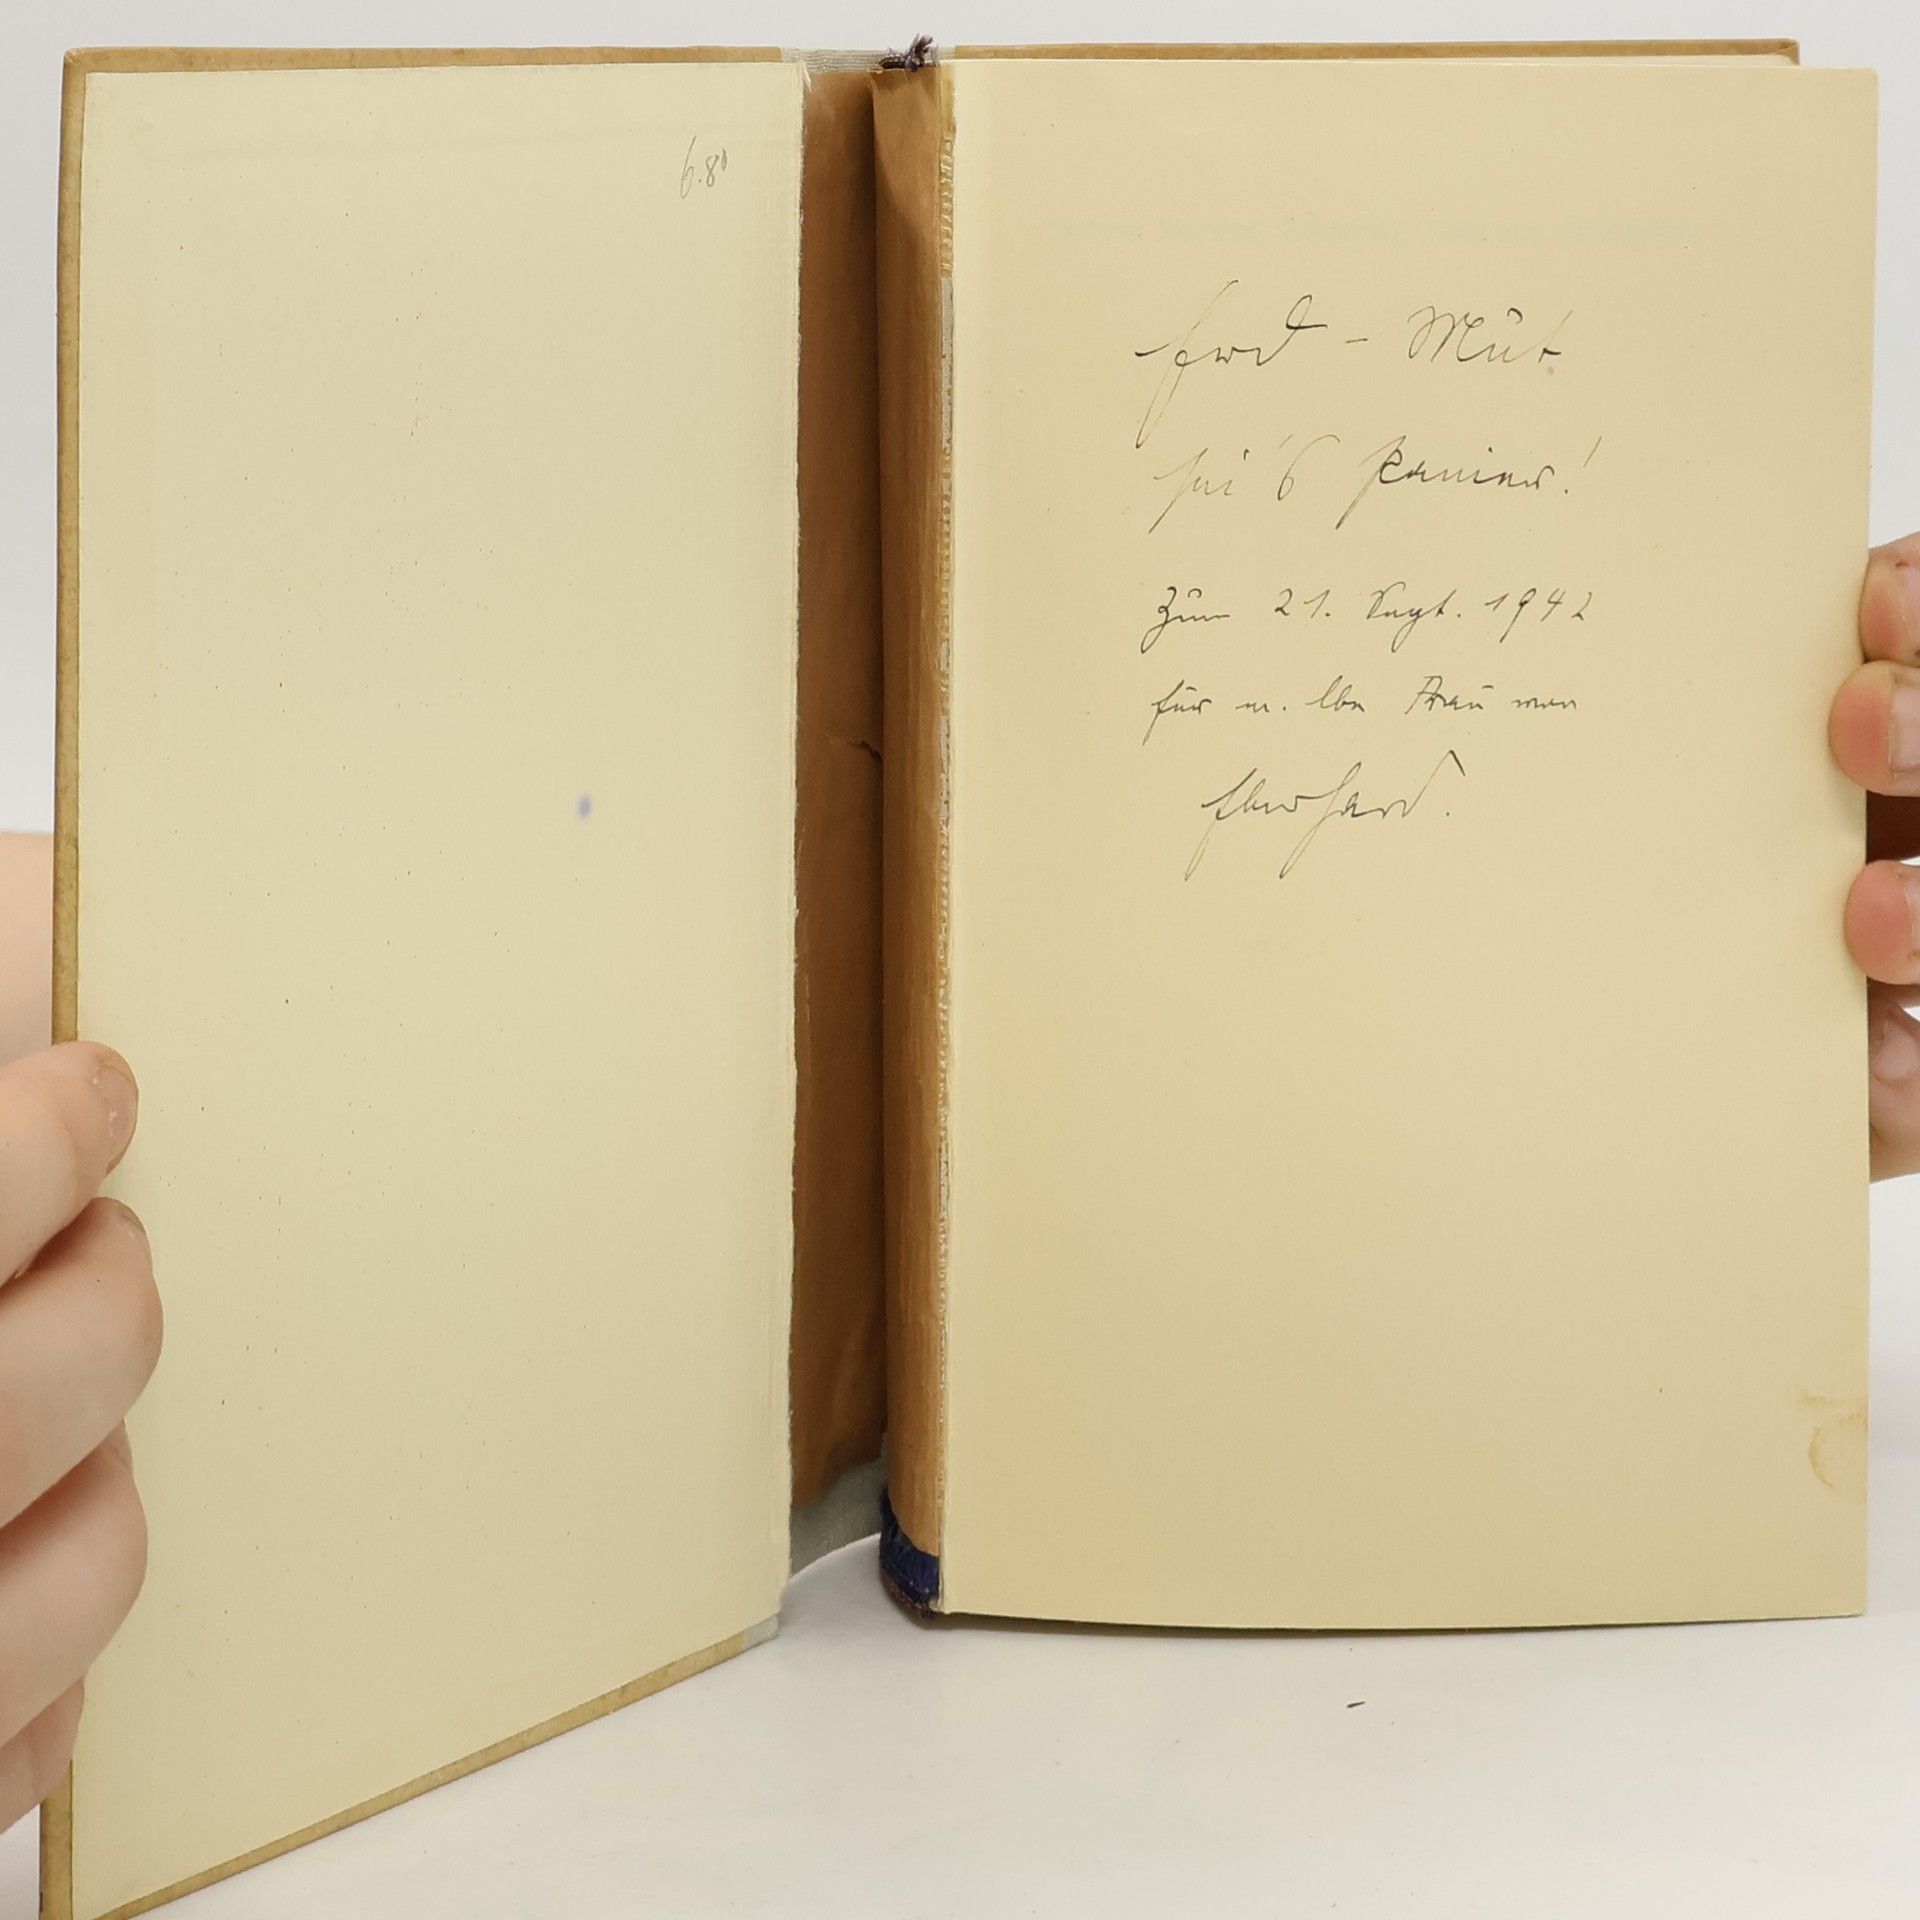 6.80
Erd - Mut
sei's Panier!
Zum 21. Sept. 1942
für m. lbe Frau von
Eberhard.